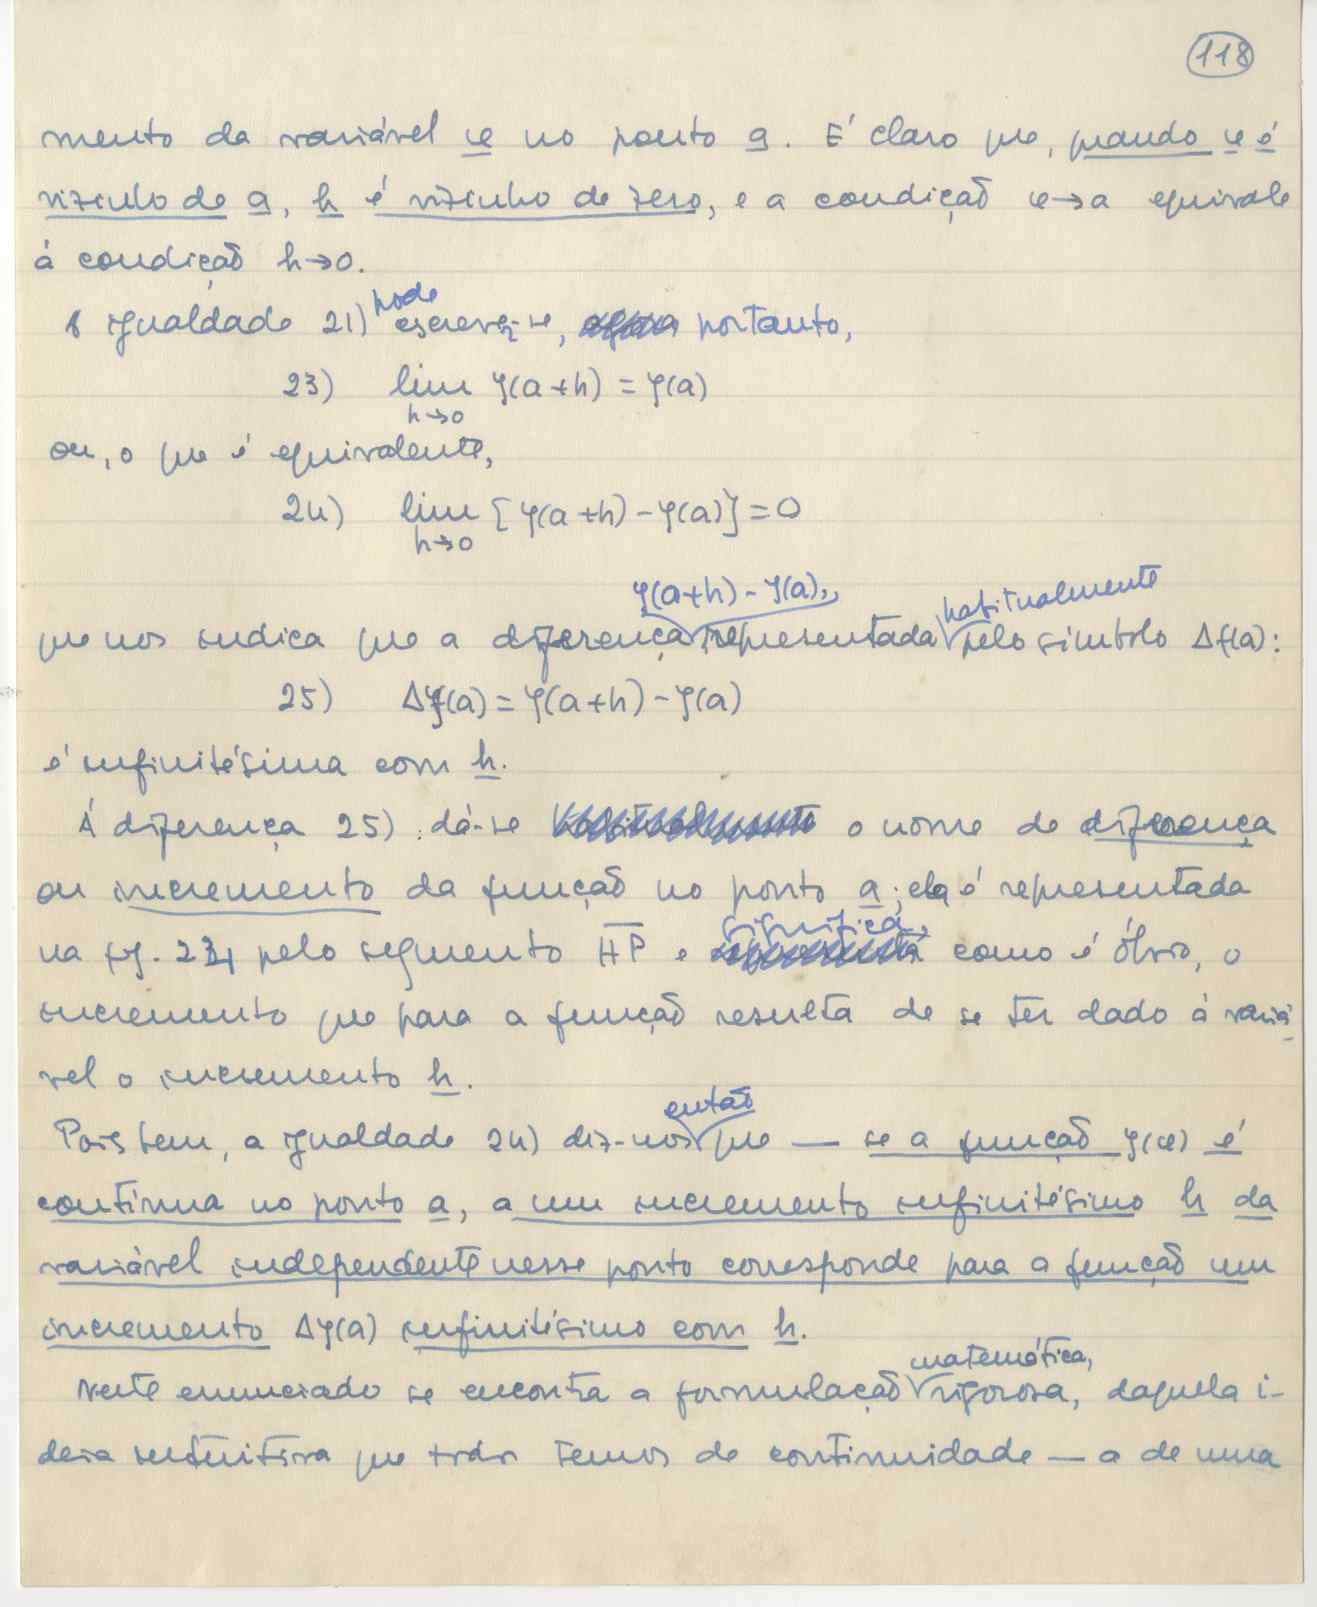 118
mento da variável x no ponto a. É claro que, quando x é
vizinho de a, h é vizinho de zero, e a condição x→a equivale
à condição h→0.
A igualdade 21) pode escrever-se, portanto,
23) lim φ(a+h) = φ(a)
h→0
ou, o que é equivalente,
24) lim [φ(a+h) - φ(a)] = 0
h→0
que nos indica que a diferença φ(a+h) - φ(a), representada habitualmente pelo símbolo Δf(a):
25) Δφ(a) = φ(a+h) - φ(a)
é infinitésima com h.
À diferença 25) dá-se o nome de diferença
ou incremento da função no ponto a; ela é representada
na fig. 24 pelo segmento HP e significa, como é óbvio, o
incremento que para a função resulta de se ter dado à variá
vel o incremento h.
Pois bem, a igualdade 24) diz-nos então que — se a função φ(x) é
contínua no ponto a, a um incremento infinitésimo h da
variável independente nesse ponto corresponde para a função um
incremento Δφ(a) infinitésimo com h.
Neste enunciado se encontra a formulação matemática, rigorosa, daquela i-
deia intuitiva que todos temos de continuidade — a de uma